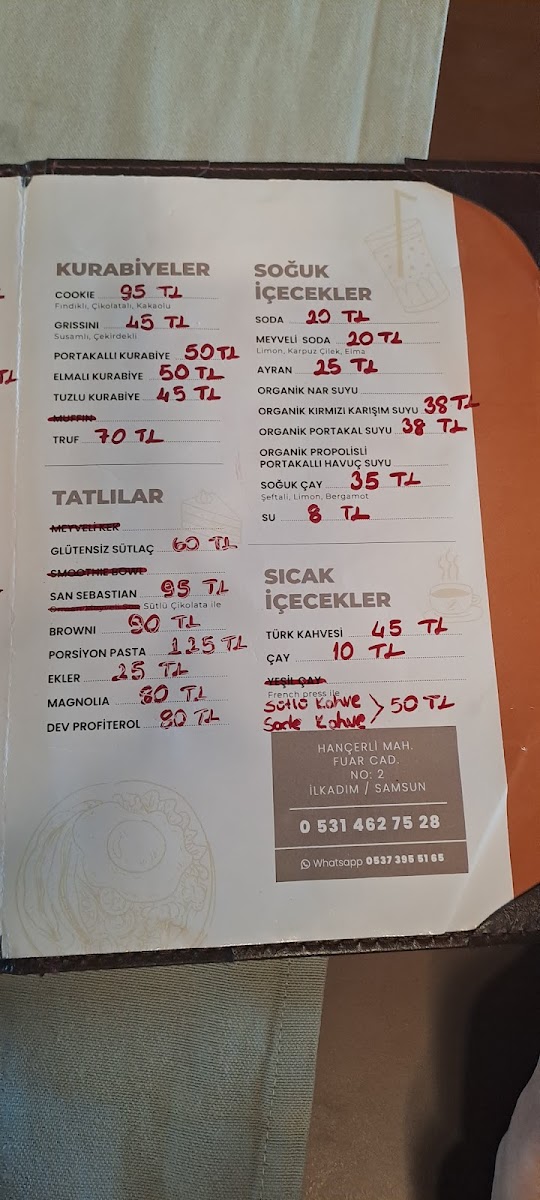 KURABİYELER
COOKIE 95 TL
Fındıklı, Çikolatalı, Kakaolu
GRISSINI 45 TL
Susamlı, Çekirdekli
PORTAKALLI KURABİYE 50 TL
ELMALI KURABİYE 50 TL
TUZLU KURABİYE 45 TL
MUFFIN
TRUF 70 TL
TATLILAR
MEYVELİ KEK
GLÜTENSİZ SÜTLAÇ 60 TL
SMOOTHIE BOWL
SAN SEBASTIAN 95 TL
Sütlü Çikolata ile
BROWNI 90 TL
PORSİYON PASTA 125 TL
EKLER 25 TL
MAGNOLIA 80 TL
DEV PROFİTEROL 90 TL
SOĞUK
İÇECEKLER
SODA 20 TL
MEYVELİ SODA 20 TL
Limon, Karpuz Çilek, Elma
AYRAN 25 TL
ORGANİK NAR SUYU
ORGANİK KIRMIZI KARIŞIM SUYU 38 TL
ORGANİK PORTAKAL SUYU 38 TL
ORGANİK PROPOLİSLİ
PORTAKALLI HAVUÇ SUYU
SOĞUK ÇAY 35 TL
Şeftali, Limon, Bergamot
SU 8 TL
SICAK
İÇECEKLER
TÜRK KAHVESİ 45 TL
ÇAY 10 TL
YEŞİL ÇAY
French press ile
Sütlü Kahve
Sade Kahve > 50 TL
HANÇERLİ MAH.
FUAR CAD.
NO: 2
İLKADIM / SAMSUN
0 531 462 75 28
Whatsapp 0537 395 51 65